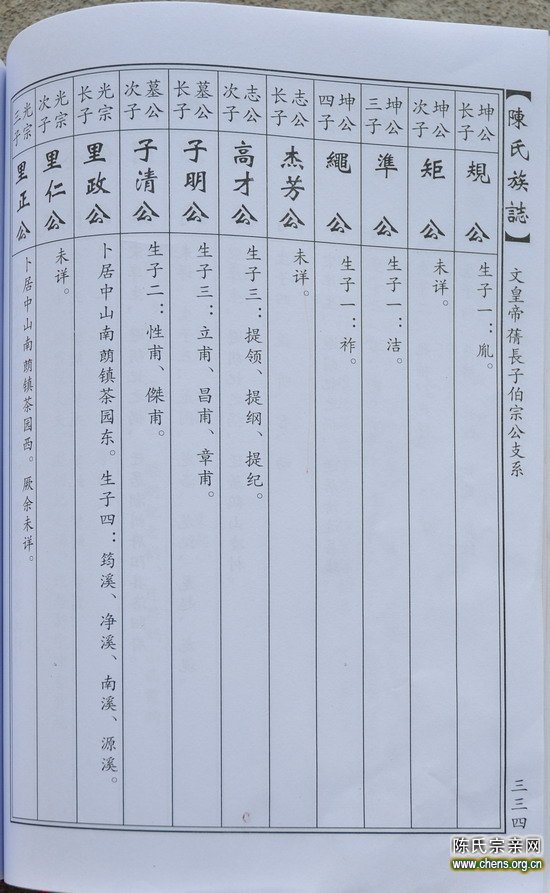 【陳氏族誌】
文皇帝蒨長子伯宗公支系
三三四
坤公
长子
規公
生子一：胤。
坤公
次子
矩公
未详。
坤公
三子
準公
生子一：洁。
坤公
四子
繩公
生子一：祚。
志公
长子
杰芳公
未详。
志公
次子
高才公
生子三：提领、提纲、提纪。
墓公
长子
子明公
生子三：立甫、昌甫、章甫。
墓公
次子
子清公
生子二：性甫、傑甫。
光宗
长子
里政公
卜居中山南蓢镇茶园东。生子四：筠溪、净溪、南溪、源溪。
光宗
次子
里仁公
未详。
光宗
三子
里正公
卜居中山南蓢镇茶园西。厥余未详。
陈氏宗亲网
www.chens.org.cn